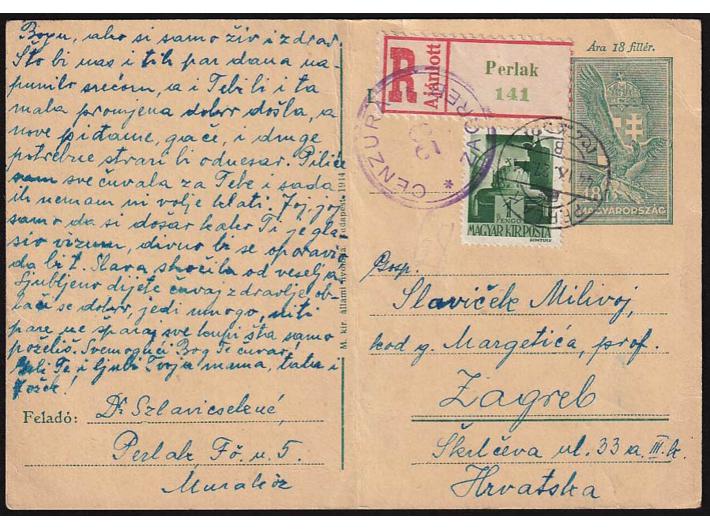 Bogu, ako si samo živ i zdrav.
Što bi nas i tih par dana na-
punilo srećom, a i Tebi bi i ta
mala promjena dobro došla, a
nove pidžame, gaće, i druge
potrebne stvari bi odnesao. Piliće
sam sve čuvala za Tebe i sada
ih nemam ni volje klati. Joj, joj
samo da si došao kako Ti je gla-
sio vizum, divno bi se oporavi
Slava skočila od veselja
Ljubljeno dijete čuvaj zdravlje, ob-
lači se dobro, jedi mnogo, niti
pare ne šparaj sve kupi šta samo
poželiš. Svemogući Bog Te čuvao!
Te i ljubi Tvoja mama, tata i
Jožek!
Feladó: Dr Szlavicsekné,
Perlak Fő. u 5.
Muraköz
M. kir. állami nyomda. Budapest. 1914
R
Ajánlott
Perlak
141
CENZURA ZAGREB *
Ára 18 fillér.
18
MAGYARORSZÁG
1
PENGŐ
MAGYAR KIR. POSTA
Gosp.
Slaviček Milivoj,
kod g. Margetića, prof.
Zagreb
Škrlčeva ul. 33a III. k.
Hrvatska